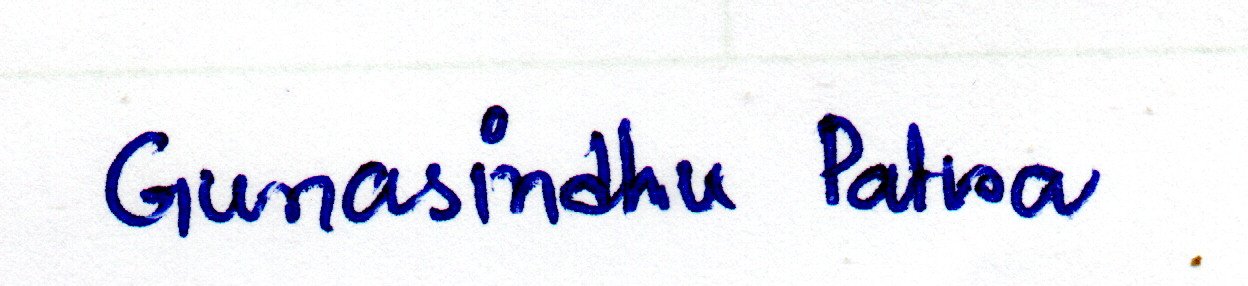 Gunasindhu Patra